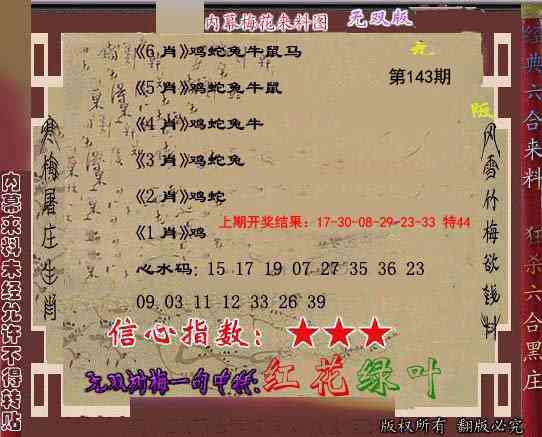 内幕梅花来料图 无双版
《6肖》鸡蛇兔牛鼠马
第143期
《5肖》鸡蛇兔牛鼠
《4肖》鸡蛇兔牛
《3肖》鸡蛇兔
《2肖》鸡蛇
上期开奖结果：17-30-08-29-23-33 特44
《1肖》鸡
心水码: 15 17 19 07 27 35 36 23
09 03 11 12 33 26 39
信心指数：★★★
红花绿叶
寒梅屠庄生肖
风雪竹梅欲钱料
内幕来料未经允许不得转贴
经典六合来料
狂杀六合黑庄
版权所有 翻版必究